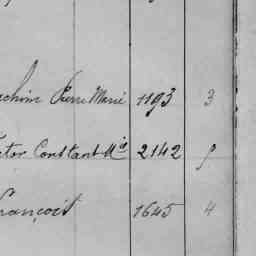 achim Pierre Marie 1193 3
ctor Constant Mie 2142 9
François 1645 4